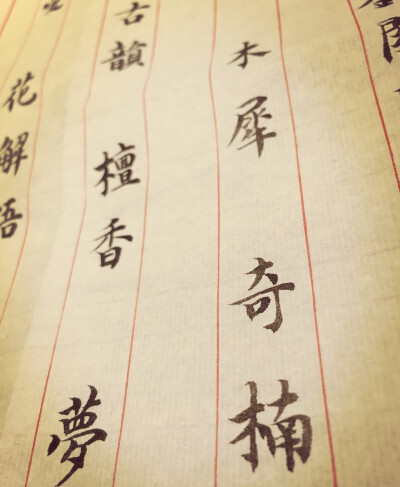 木犀 奇楠
古韻 檀香 夢
花解語